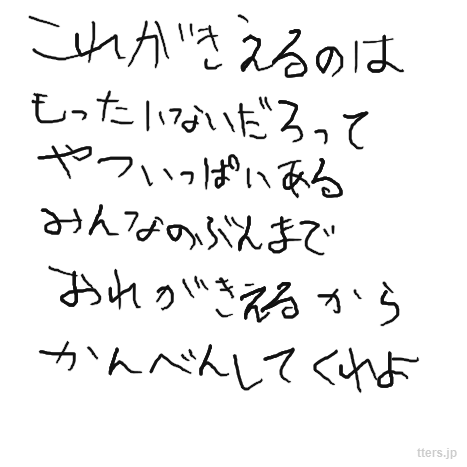 これがきえるのは
もったいないだろって
やついっぱいある
みんなのぶんまで
おれがきえるから
かんべんしてくれよ
tters.jp